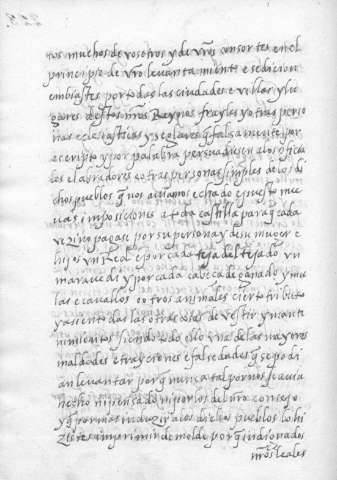 tos muchos de vosotros y de vros consortes en el
principio de vro levantamiento e sedicion
embiastes por todas las ciudades e villas y lu
gares destos nros Reynos frayles y otras perso
nas eclesiasticas y seglares q falsamente por
escripto y por palabra persuadiesen a los oficia
les e labradores e otras personas simples de los di
chos pueblos q nos aviamos echado e puesto nue
vas imposiciones a toda castilla para q cada
vezino pagase por su persona y de su muger e
hijos un Real e por cada teja del tejado un
maravedi y por cada cabeça de ganado y mu
las e cavallos o otros animales cierto tributo
y asiento das las otras cosas de vestir y mante
nimientos siendo todo ello una de las mayores
maldades e trayciones e falsedades q se podi
an levantar porq nunca tal por nos se avia
hecho ni pensado ni por los del nro consejo
y q por mas induzir a los dichos pueblos lo hi
zistes imprimir de molde porq indinados
nros leales